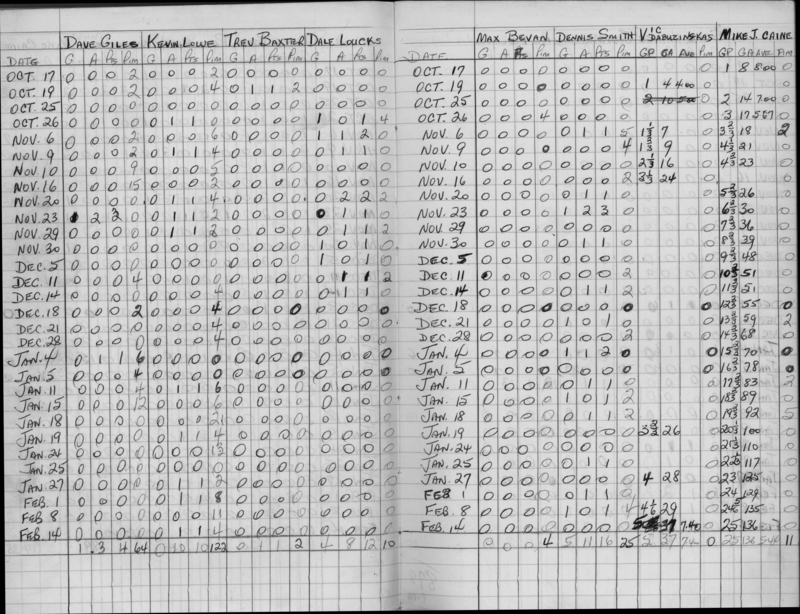 DAVE GILES KEVIN LOWE TREV BAXTER DALE LOUCKS
DATE G A Pts Pim G A Pts Pim G A Pts Pim G A Pts Pim
OCT. 17 0 0 0 2 0 0 0 2 0 0 0 0 0 0 0 0
OCT. 19 0 0 0 2 0 0 0 4 0 1 1 2 0 0 0 0
OCT. 25 0 0 0 0 0 0 0 0 0 0 0 0 0 0 0 0
OCT. 26 0 0 0 0 0 1 1 0 0 0 0 0 1 0 1 4
NOV. 6 0 0 0 2 0 0 0 6 0 0 0 0 1 1 2 0
NOV. 9 0 0 0 2 0 1 1 4 0 0 0 0 0 1 1 0
NOV. 10 0 0 0 9 0 0 0 5 0 0 0 0 0 0 0 0
NOV. 16 0 0 0 15 0 0 0 2 0 0 0 0 0 0 0 0
NOV. 20 0 0 0 0 0 1 1 4 0 0 0 0 0 2 2 2
NOV. 23 1 2 3 0 0 1 1 2 0 0 0 0 0 1 1 0
NOV. 29 0 0 0 0 0 1 1 2 0 0 0 0 0 1 1 2
NOV. 30 0 0 0 0 0 0 0 0 0 0 0 0 1 0 1 0
DEC. 5 0 0 0 0 0 0 0 0 0 0 0 0 1 0 1 0
DEC. 11 0 0 0 4 0 0 0 2 0 0 0 0 0 1 1 2
DEC. 14 0 0 0 0 0 0 0 4 0 0 0 0 0 1 1 0
DEC. 18 0 0 0 2 0 0 0 4 0 0 0 0 0 0 0 0
DEC. 21 0 0 0 0 0 0 0 4 0 0 0 0 0 0 0 0
DEC. 28 0 0 0 0 0 0 0 4 0 0 0 0 0 0 0 0
JAN. 4 0 1 1 6 0 0 0 0 0 0 0 0 0 0 0 0
JAN. 5 0 0 0 4 0 0 0 0 0 0 0 0 0 0 0 0
JAN. 11 0 0 0 4 0 1 1 6 0 0 0 0 0 0 0 0
JAN. 15 0 0 0 12 0 0 0 6 0 0 0 0 0 0 0 0
JAN. 18 0 0 0 0 0 0 0 21 0 0 0 0 0 0 0 0
JAN. 19 0 0 0 0 0 1 1 4 0 0 0 0 0 0 0 0
JAN. 24 0 0 0 0 0 0 0 0 0 0 0 0 0 0 0
JAN. 25 0 0 0 0 0 0 0 0 0 0 0 0 0 0 0 0
JAN. 27 0 0 0 0 0 1 1 2 0 0 0 0 0 0 0 0
FEB. 1 0 0 0 0 0 1 1 8 0 0 0 0 0 0 0 0
FEB. 8 0 0 0 0 0 0 0 11 0 0 0 0 0 0 0 0
FEB. 14 0 0 0 0 0 1 1 4 0 0 0 0 0 0 0 0
1 3 4 64 0 10 10 122 0 1 1 2 4 8 12 10
MAX BEVAN DENNIS SMITH VIC DABUZINSKAS MIKE J. CAINE
DATE G A Pts Pim G A Pts Pim GP GA AVE Pim GP GA AVE Pim
OCT. 17 0 0 0 0 0 0 0 0 1 8 8.00
OCT. 19 0 0 0 0 0 0 0 0 1 4 4.00
OCT. 25 0 0 0 0 0 0 0 0 2 10 5.00 0 2 14 7.00
OCT. 26 0 0 0 4 0 0 0 0 0 3 17 5.67
NOV. 6 0 0 0 0 0 1 1 5 1⅓ 7 0 3⅔ 18 2
NOV. 9 0 0 0 0 0 0 0 4 1⅔ 9 0 4⅓ 21
NOV. 10 0 0 0 0 0 0 0 0 2⅓ 16 0 4⅔ 23
NOV. 16 0 0 0 0 0 0 0 2 3⅓ 24 0
NOV. 20 0 0 0 0 0 1 1 0 0 5⅔ 26
NOV. 23 0 0 0 0 1 2 3 0 0 6⅔ 30
NOV. 29 0 0 0 0 0 0 0 0 0 7⅔ 36
NOV. 30 0 0 0 0 0 1 1 0 0 8⅔ 39
DEC. 5 0 0 0 0 0 0 0 0 0 9⅔ 48
DEC. 11 0 0 0 0 0 0 0 2 0 10⅔ 51
DEC. 14 0 0 0 0 0 1 1 2 0 11⅔ 51
DEC. 18 0 0 0 0 0 0 0 0 0 12⅔ 55 0
DEC. 21 0 0 0 0 1 0 1 0 0 13⅔ 59 2
DEC. 28 0 0 0 0 0 0 0 2 0 14⅔ 68
JAN. 4 0 0 0 0 1 1 2 0 0 15⅔ 70 0
JAN. 5 0 0 0 0 0 0 0 0 0 16⅔ 78 0
JAN. 11 0 0 0 0 0 1 1 0 0 17⅔ 83 2
JAN. 15 0 0 0 0 1 0 1 2 0 18⅔ 89
JAN. 18 0 0 0 0 0 1 1 2 0 19⅔ 92 5
JAN. 19 0 0 0 0 0 0 0 0 3⅔ 26 0 20⅓ 100
JAN. 24 0 0 0 0 0 0 0 0 0 21⅓ 110
JAN. 25 0 0 0 0 0 1 1 0 0 117
JAN. 27 0 0 0 0 0 0 0 0 4 28 0 23 125
FEB 1 0 0 0 0 0 1 1 0 0 24 129
FEB. 8 0 0 0 0 1 0 1 4 4⅙ 29 0 24⅚ 135
FEB. 14 0 0 0 0 0 0 0 0 37 7.40 0 25 136
0 0 0 4 5 11 16 25 5 37 7.4 0 25 136 5.44 11